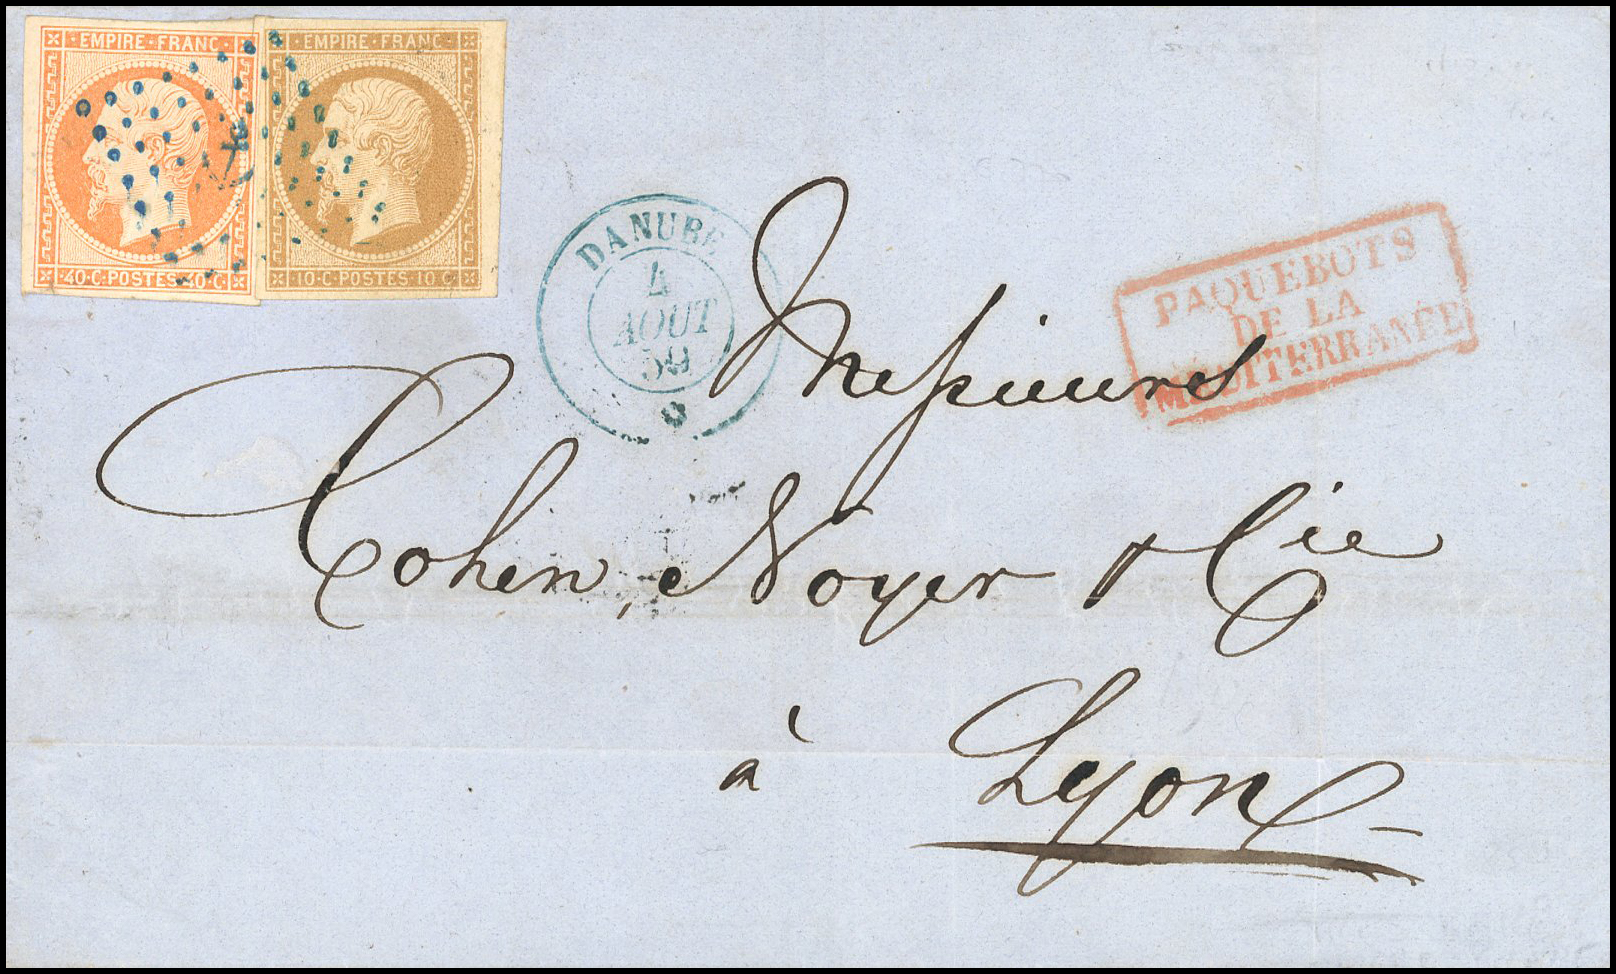 EMPIRE·FRANC·
40·C·POSTES·40·C·
EMPIRE·FRANC·
10·C·POSTES·10·C·
DANUBE
4
AOUT
59
PAQUEBOTS
DE LA
MÉDITERRANÉE
Messieurs
Cohen, Noyer & Cie
à
Lyon